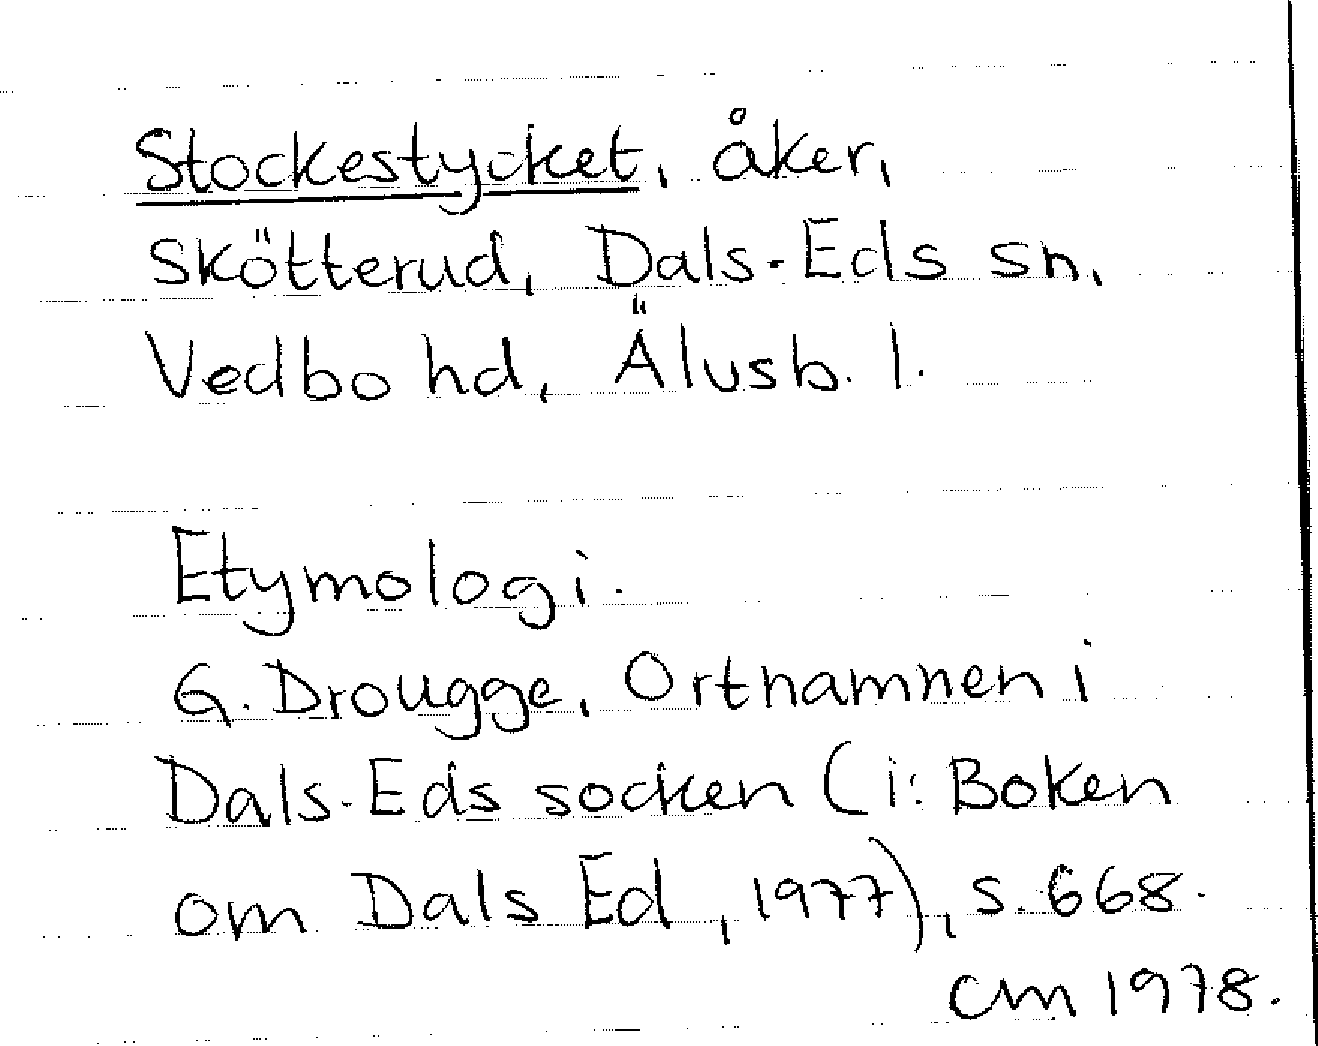 Stockestycket, åker,
Skötterud, Dals-Eds sn,
Vedbo hd, Älvsb. l.
Etymologi.
G. Drougge, Ortnamnen i
Dals-Eds socken (i: Boken
om Dals Ed, 1977), s. 668.
CM 1978.